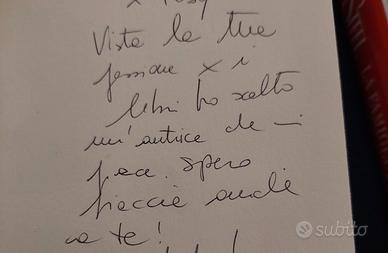 x
Vista la tua
passione x i
libri ho scelto
un'autrice che mi
piace. Spero
piaccia anche
a te!
subito